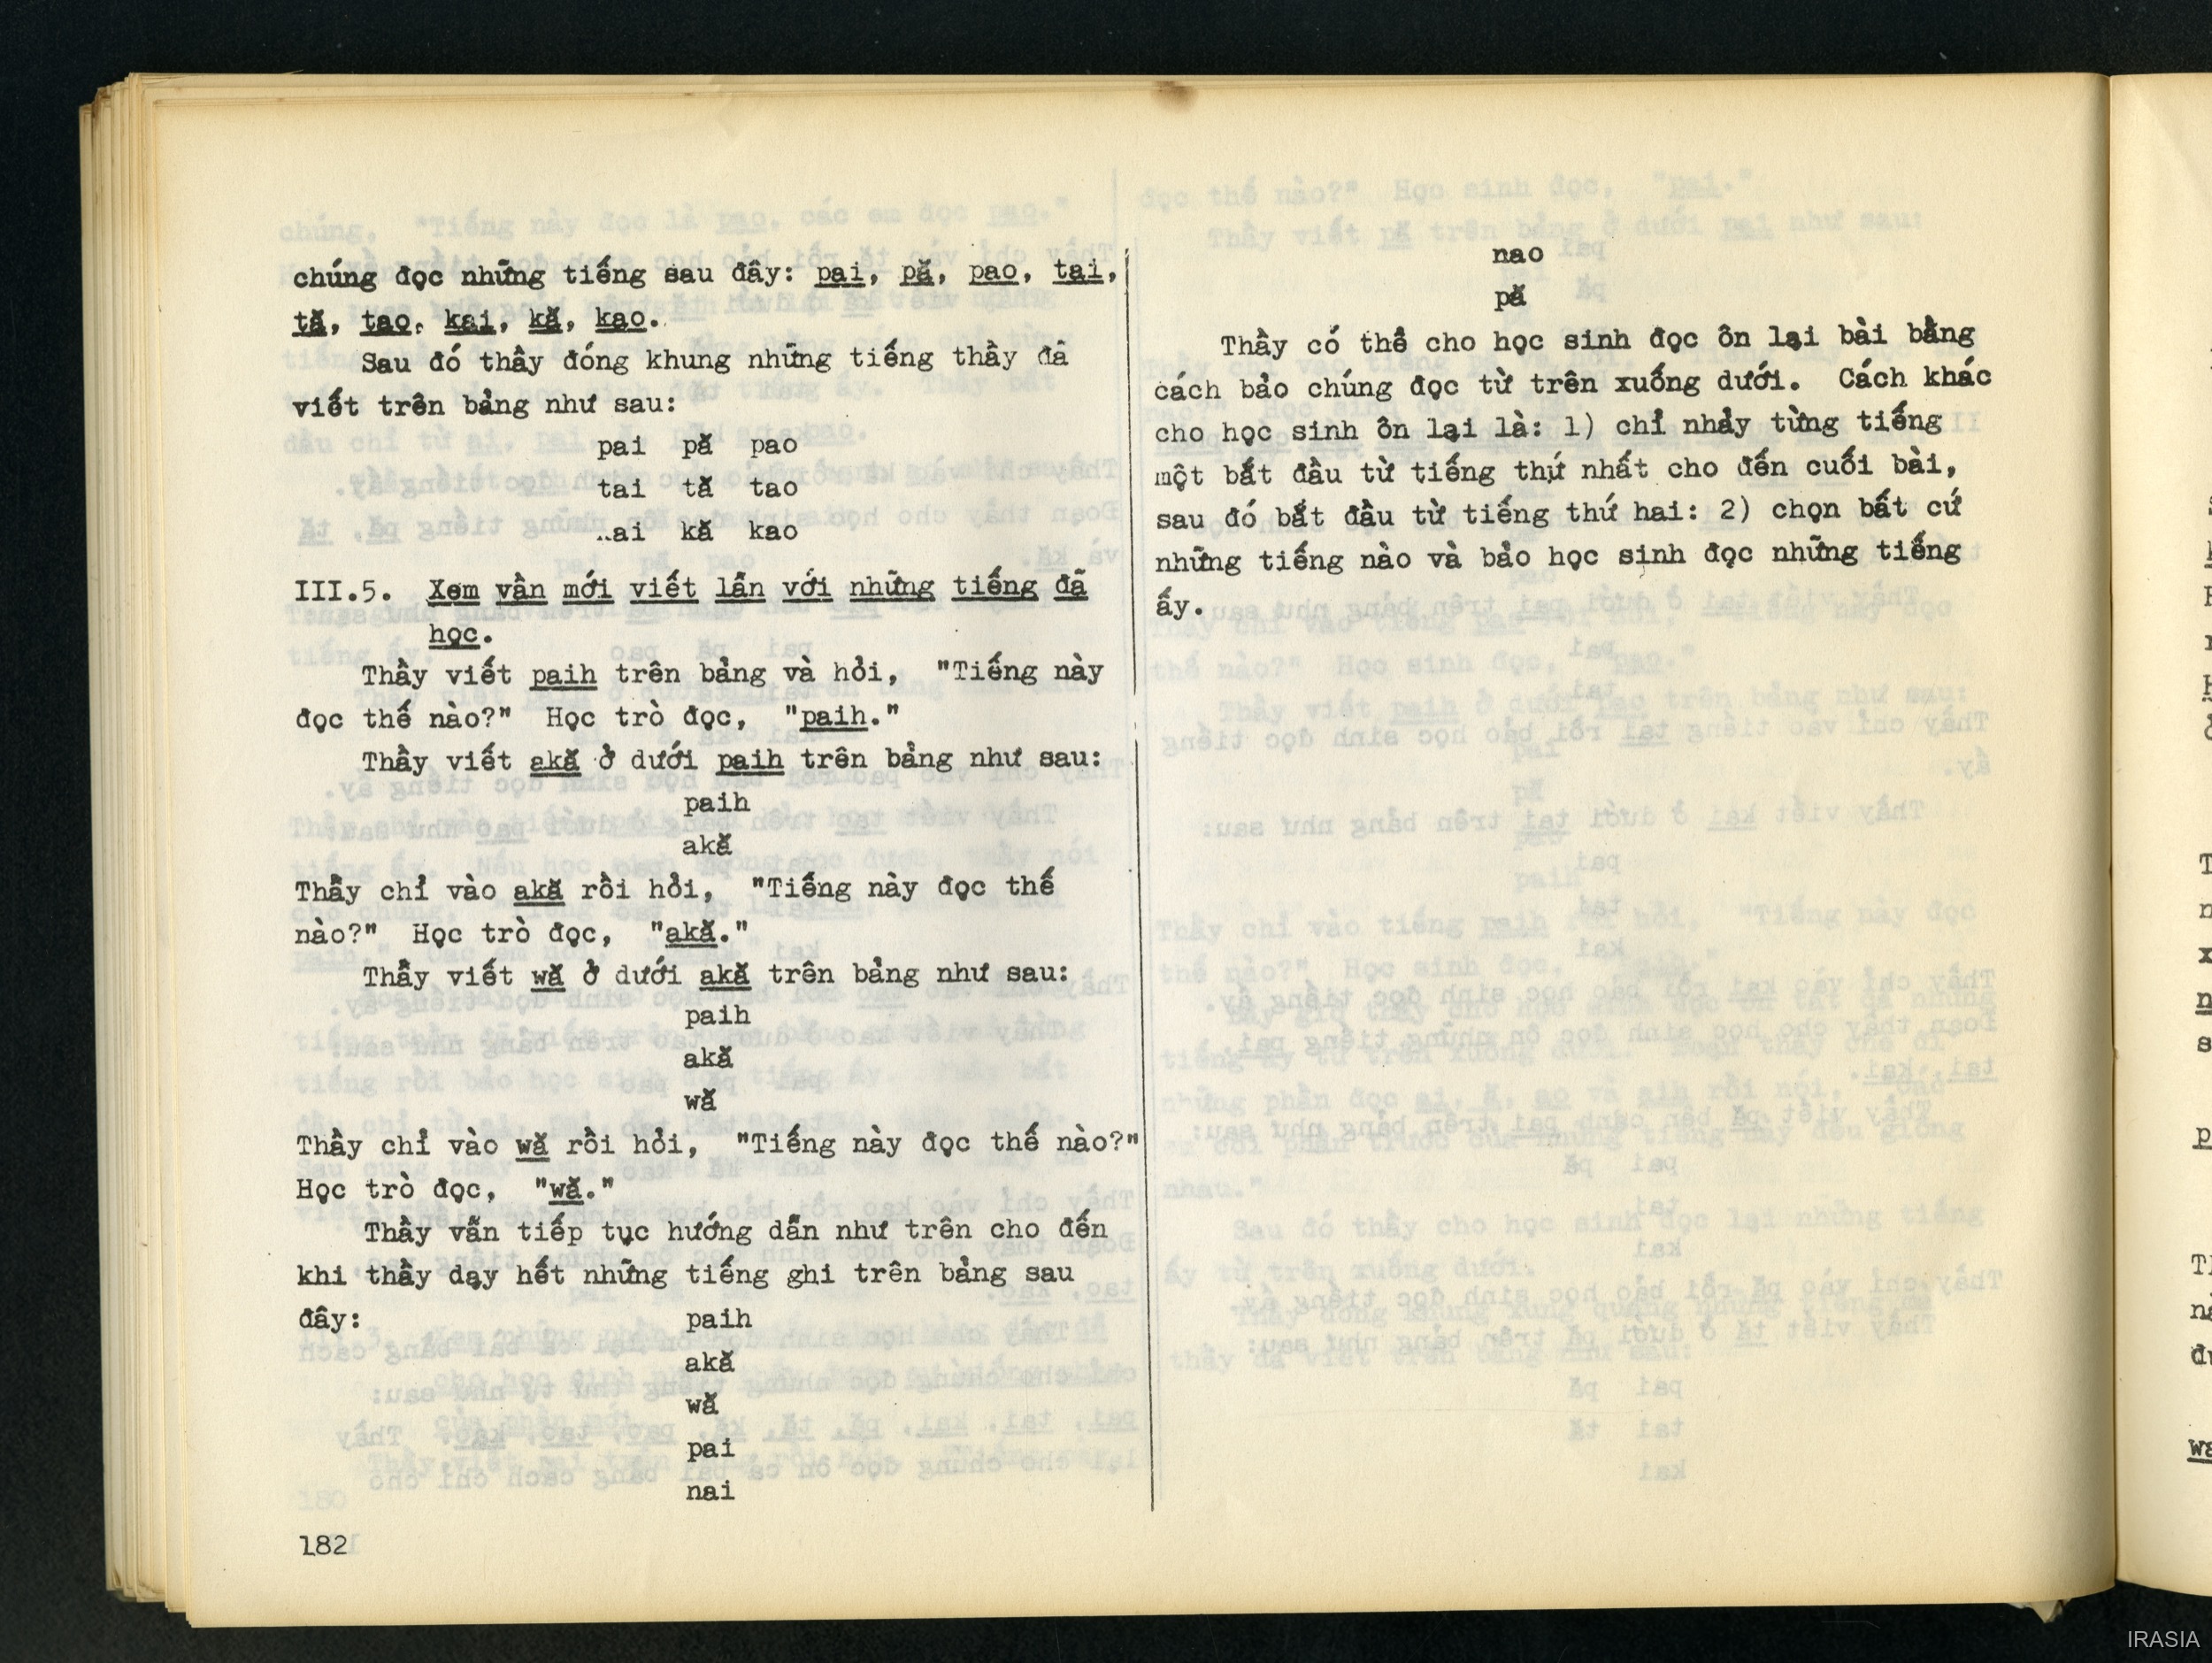 chúng đọc những tiếng sau đây: pai, pă, pao, tai,
tă, tao, kai, kă, kao.
Sau đó thầy đóng khung những tiếng thầy đã
viết trên bảng như sau:
pai pă pao
tai tă tao
kai kă kao
III.5. Xem vần mới viết lẫn với những tiếng đã
học.
Thầy viết paih trên bảng và hỏi, "Tiếng này
đọc thế nào?" Học trò đọc, "paih."
Thầy viết akă ở dưới paih trên bảng như sau:
paih
akă
Thầy chỉ vào akă rồi hỏi, "Tiếng này đọc thế
nào?" Học trò đọc, "akă."
Thầy viết wă ở dưới akă trên bảng như sau:
paih
akă
wă
Thầy chỉ vào wă rồi hỏi, "Tiếng này đọc thế nào?"
Học trò đọc, "wă."
Thầy vẫn tiếp tục hướng dẫn như trên cho đến
khi thầy dạy hết những tiếng ghi trên bảng sau
đây:
paih
akă
wă
pai
nai
182
nao
pă
Thầy có thể cho học sinh đọc ôn lại bài bằng
cách bảo chúng đọc từ trên xuống dưới. Cách khác
cho học sinh ôn lại là: 1) chỉ nhảy từng tiếng
một bắt đầu từ tiếng thứ nhất cho đến cuối bài,
sau đó bắt đầu từ tiếng thứ hai: 2) chọn bất cứ
những tiếng nào và bảo học sinh đọc những tiếng
ấy.
IRASIA